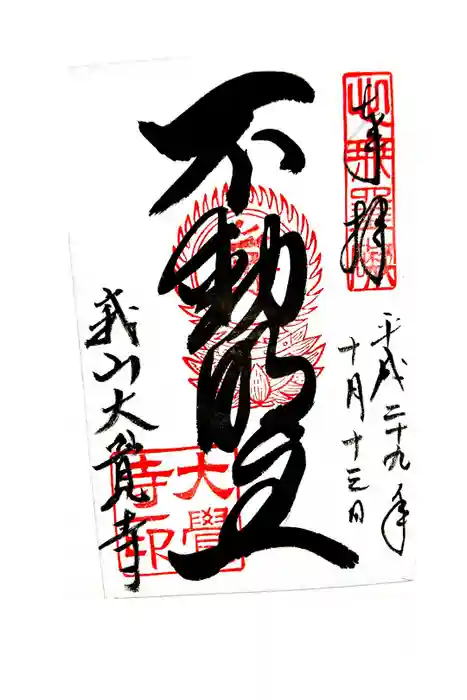 奉拝
平成二十九年
十月十三日
不動明王
峩山大覚寺
大覺
寺印